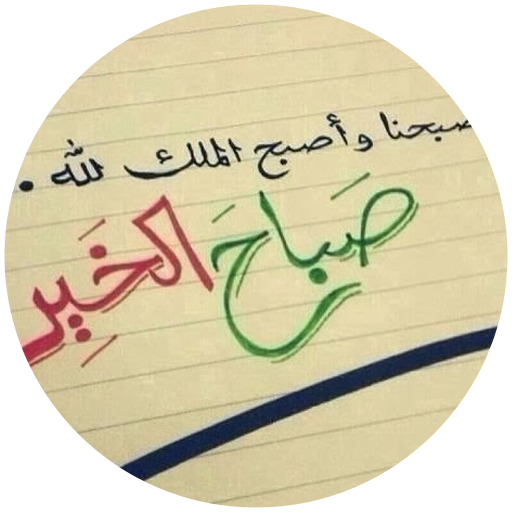 صبحنا وأصبح الملك لله .
صَباحَ الخَيِر